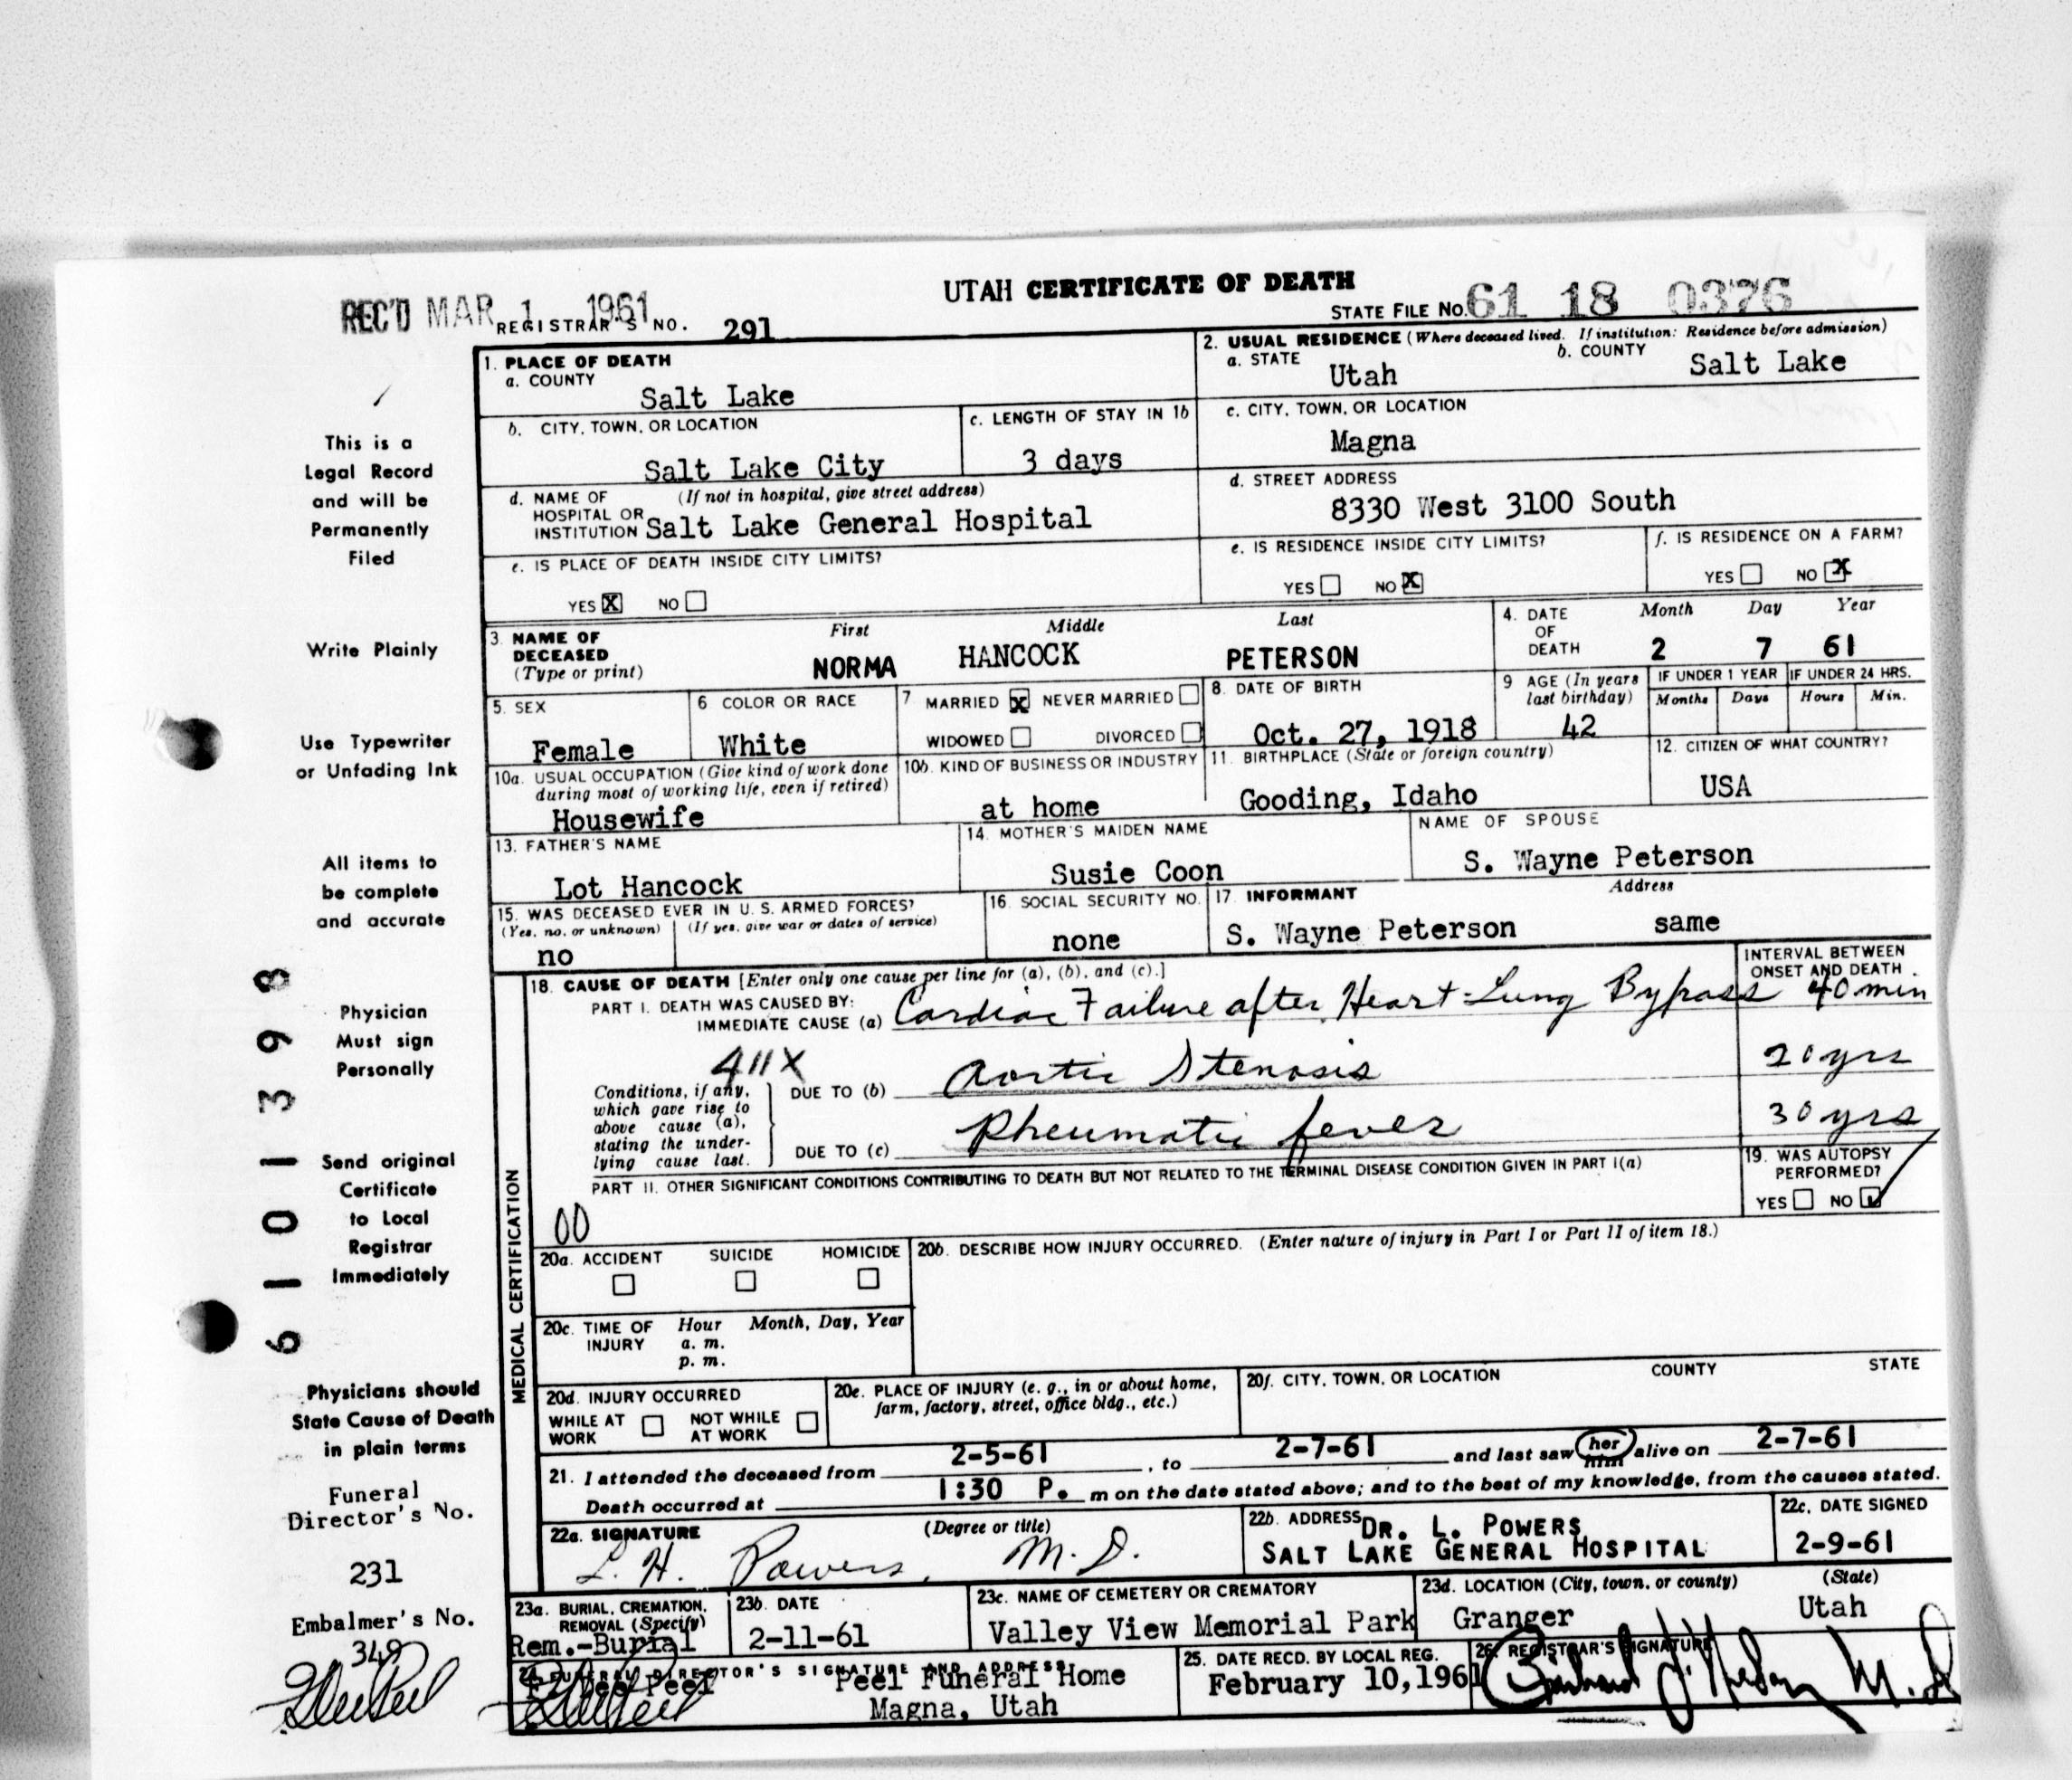 UTAH CERTIFICATE OF DEATH
REC'D MAR 1 1961
REGISTRAR'S NO. 291
STATE FILE NO. 61 18 0376
1. PLACE OF DEATH
a. COUNTY
Salt Lake
b. CITY, TOWN, OR LOCATION
Salt Lake City
c. LENGTH OF STAY IN 1b
3 days
d. NAME OF HOSPITAL OR INSTITUTION (If not in hospital, give street address)
Salt Lake General Hospital
e. IS PLACE OF DEATH INSIDE CITY LIMITS?
YES X NO
2. USUAL RESIDENCE (Where deceased lived. If institution: Residence before admission)
a. STATE
Utah
b. COUNTY
Salt Lake
c. CITY, TOWN, OR LOCATION
Magna
d. STREET ADDRESS
8330 West 3100 South
e. IS RESIDENCE INSIDE CITY LIMITS?
YES NO X
f. IS RESIDENCE ON A FARM?
YES NO X
3. NAME OF DECEASED (Type or print)
First Middle Last
NORMA HANCOCK PETERSON
4. DATE OF DEATH
Month Day Year
2 7 61
5. SEX
Female
6 COLOR OR RACE
White
7 MARRIED X NEVER MARRIED
WIDOWED DIVORCED
8. DATE OF BIRTH
Oct. 27, 1918
9 AGE (In years last birthday)
42
IF UNDER 1 YEAR
Months Days
IF UNDER 24 HRS.
Hours Min.
10a. USUAL OCCUPATION (Give kind of work done during most of working life, even if retired)
Housewife
10b. KIND OF BUSINESS OR INDUSTRY
at home
11. BIRTHPLACE (State or foreign country)
Gooding, Idaho
12. CITIZEN OF WHAT COUNTRY?
USA
13. FATHER'S NAME
Lot Hancock
14. MOTHER'S MAIDEN NAME
Susie Coon
NAME OF SPOUSE
S. Wayne Peterson
15. WAS DECEASED EVER IN U. S. ARMED FORCES?
(Yes, no, or unknown) (If yes, give war or dates of service)
no
16. SOCIAL SECURITY NO.
none
17. INFORMANT Address
S. Wayne Peterson same
MEDICAL CERTIFICATION
18. CAUSE OF DEATH [Enter only one cause per line for (a), (b), and (c).]
INTERVAL BETWEEN ONSET AND DEATH
PART I. DEATH WAS CAUSED BY:
IMMEDIATE CAUSE (a) Cardiac Failure after Heart-Lung Bypass 40 min
411X
Conditions, if any, which gave rise to above cause (a), stating the underlying cause last.
DUE TO (b) Aortic Stenosis 20 yrs
DUE TO (c) Rheumatic fever 30 yrs
PART II. OTHER SIGNIFICANT CONDITIONS CONTRIBUTING TO DEATH BUT NOT RELATED TO THE TERMINAL DISEASE CONDITION GIVEN IN PART I(a)
00
19. WAS AUTOPSY PERFORMED?
YES NO
20a. ACCIDENT SUICIDE HOMICIDE
20b. DESCRIBE HOW INJURY OCCURRED. (Enter nature of injury in Part I or Part II of item 18.)
20c. TIME OF INJURY Hour Month, Day, Year
a. m.
p. m.
20d. INJURY OCCURRED
WHILE AT WORK NOT WHILE AT WORK
20e. PLACE OF INJURY (e. g., in or about home, farm, factory, street, office bldg., etc.)
20f. CITY, TOWN, OR LOCATION COUNTY STATE
21. I attended the deceased from 2-5-61, to 2-7-61 and last saw her him alive on 2-7-61
Death occurred at 1:30 P. m on the date stated above; and to the best of my knowledge, from the causes stated.
22a. SIGNATURE (Degree or title)
L. H. Powers, M. D.
22b. ADDRESS DR. L. POWERS
SALT LAKE GENERAL HOSPITAL
22c. DATE SIGNED
2-9-61
23a. BURIAL, CREMATION, REMOVAL (Specify)
Rem.-Burial
23b. DATE
2-11-61
23c. NAME OF CEMETERY OR CREMATORY
Valley View Memorial Park
23d. LOCATION (City, town, or county) (State)
Granger Utah
24. FUNERAL DIRECTOR'S SIGNATURE AND ADDRESS
Peel Peel Funeral Home
Magna, Utah
25. DATE RECD. BY LOCAL REG.
February 10, 1961
26. REGISTRAR'S SIGNATURE
M.D
This is a
Legal Record
and will be
Permanently
Filed
Write Plainly
Use Typewriter
or Unfading Ink
All items to
be complete
and accurate
Physician
Must sign
Personally
Send original
Certificate
to Local
Registrar
Immediately
Physicians should
State Cause of Death
in plain terms
Funeral
Director's No.
231
Embalmer's No.
349
6101398